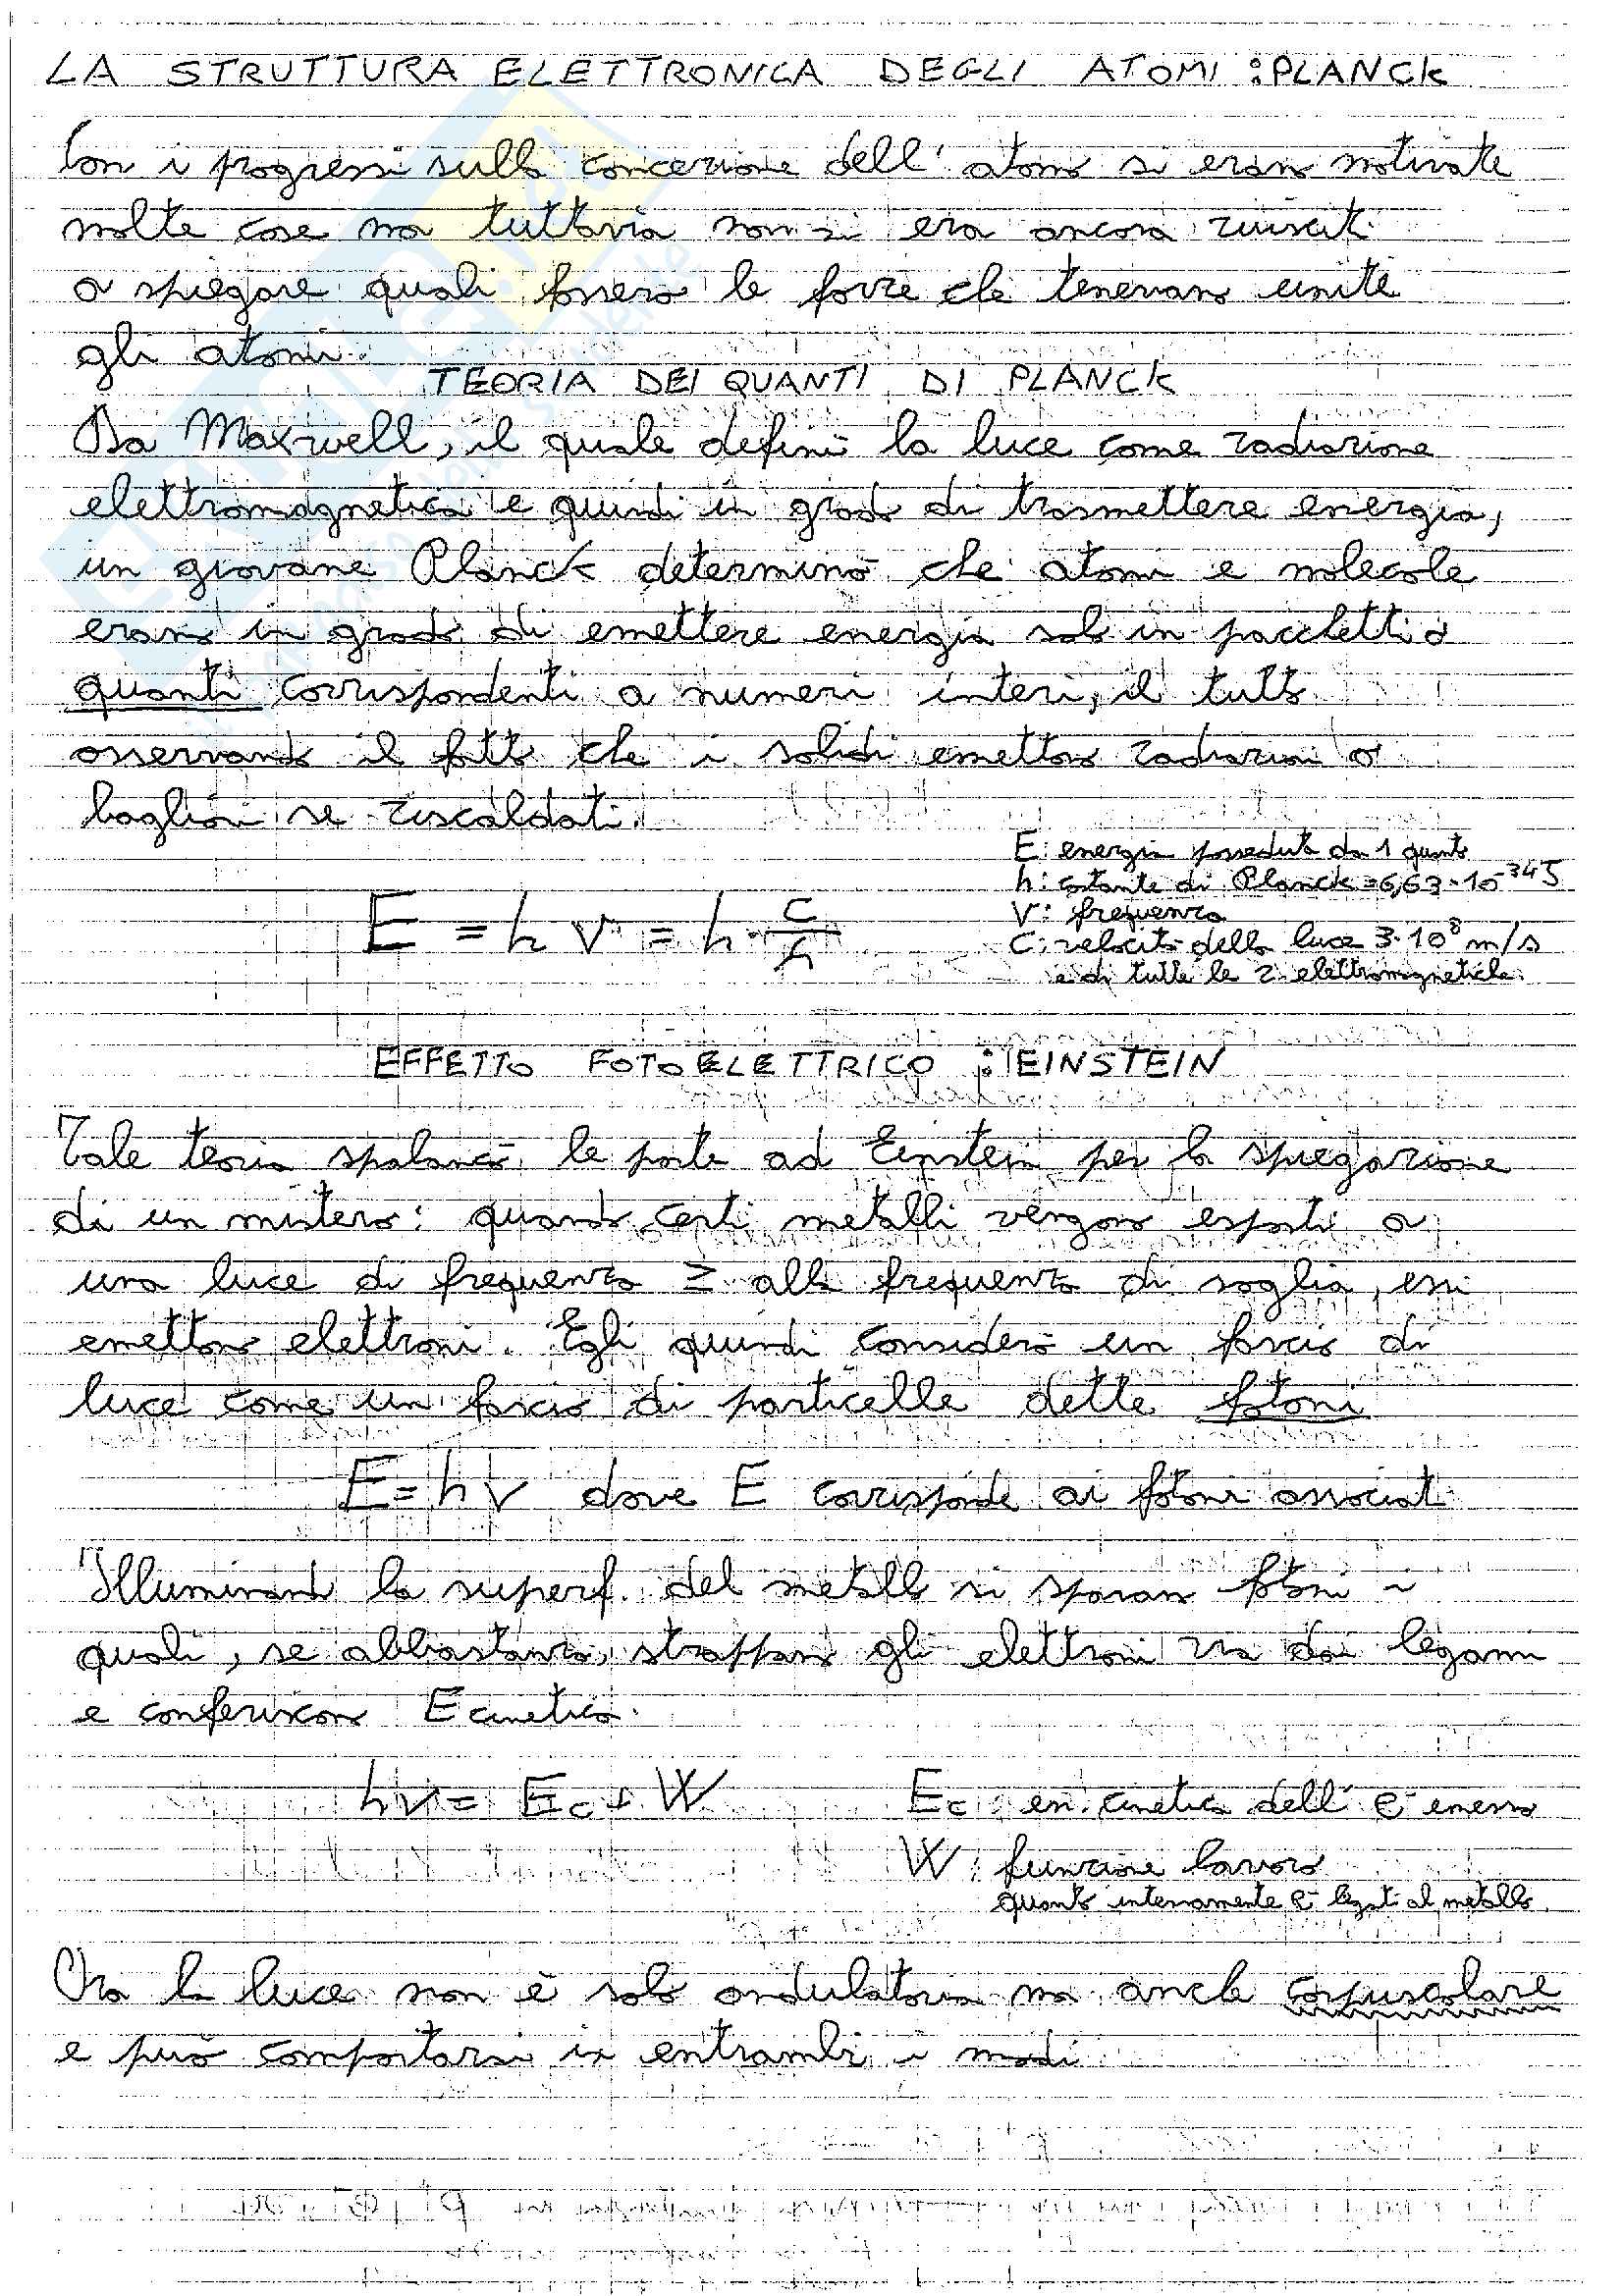 LA STRUTTURA ELETTRONICA DEGLI ATOMI : PLANCK
Con i progressi sulla concezione dell'atomo si erano motivate
molte cose ma tuttavia non si era ancora riusciti
a spiegare quali fossero le forze che tenevano unite
gli atomi.
TEORIA DEI QUANTI DI PLANCK
Da Maxwell, il quale definì la luce come radiazione
elettromagnetica e quindi in grado di trasmettere energia,
un giovane Planck determinò che atomi e molecole
erano in grado di emettere energia solo in pacchetti o
quanti corrispondenti a numeri interi, il tutto
osservando il fatto che i solidi emettono radiazioni o
bagliori se riscaldati.
E = hν = h · c/λ
E: energia posseduta da 1 quanto
h: costante di Planck = 6,63 · 10^-34 J S
ν: frequenza
C: velocità della luce 3·10^8 m/s
e di tutte le r. elettromagnetiche.
EFFETTO FOTOELETTRICO : EINSTEIN
Tale teoria spalancò le porte ad Einstein per la spiegazione
di un mistero: quando certi metalli vengono esposti a
una luce di frequenza ≥ alla frequenza di soglia, essi
emettono elettroni. Egli quindi considerò un fascio di
luce come un fascio di particelle dette fotoni
E = hν dove E corrisponde ai fotoni associati
Illuminando la superf. del metallo si sparano fotoni i
quali, se abbastanza, strappano gli elettroni via dai legami
e conferiscono E cinetica.
hν = Ec + W
Ec : en. cinetica dell' e- emesso
W : funzione lavoro
quanto intensamente e- legati al metallo.
Ora la luce non è solo ondulatoria ma anche corpuscolare
e può comportarsi in entrambi i modi